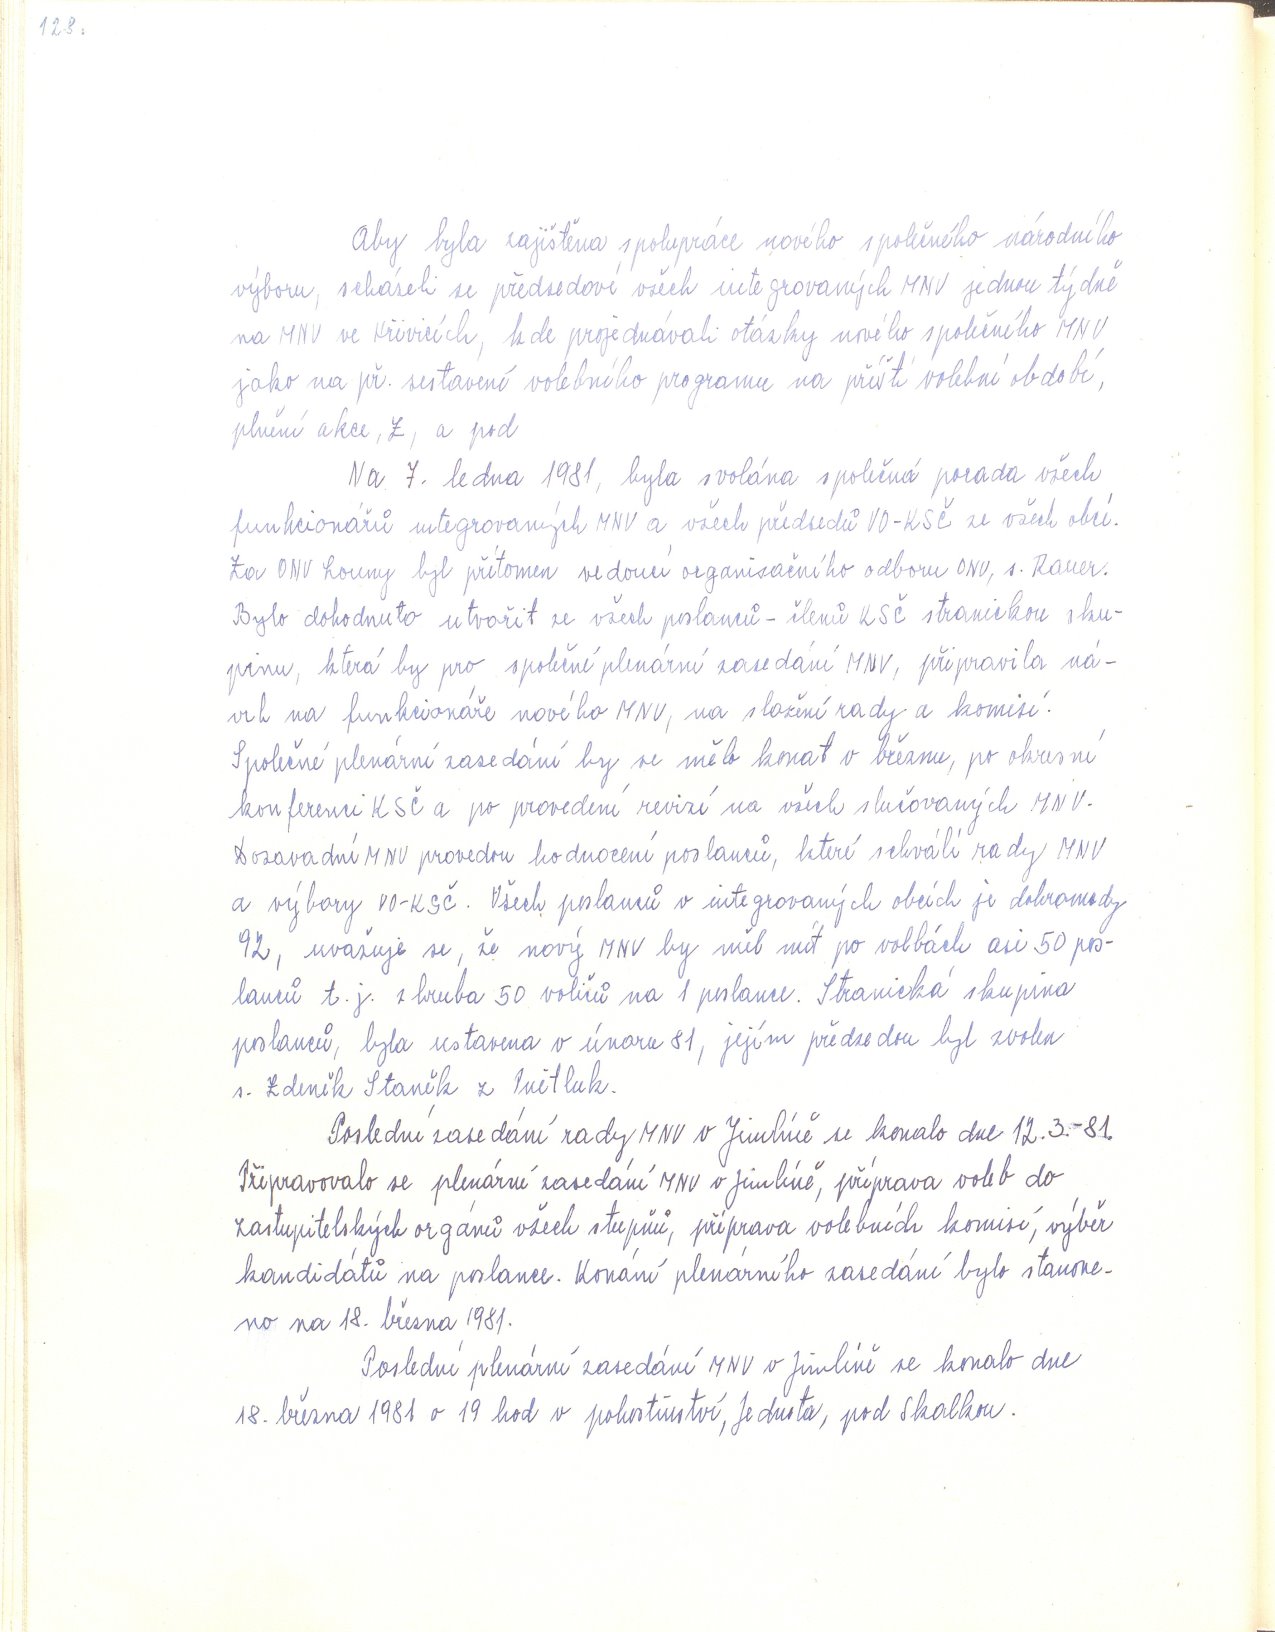 128.
Aby byla zajištěna spolupráce nového společného národního
výboru, scházeli se předsedové všech integrovaných MNV jednou týdně
na MNV ve Křivicích, kde projednávali otázky nového společného MNV
jako na př. sestavení volebního programu na příští volební období,
plnění akce, Z, a pod
Na 7. ledna 1981, byla svolána společná porada všech
funkcionářů integrovaných MNV a všech předsedů VO-KSČ ze všech obcí.
Za ONV Louny byl přítomen vedoucí organisačního odboru ONV, s. Rauer.
Bylo dohodnuto utvořit ze všech poslanců - členů KSČ stranickou sku-
pinu, která by pro společné plenární zasedání MNV, připravila ná-
vrh na funkcionáře nového MNV, na složení rady a komisí.
Společné plenární zasedání by se mělo konat v březnu, po okresní
konferenci KSČ a po provedení revizí na všech slučovaných MNV.
Dosavadní MNV provedou hodnocení poslanců, které schválí rady MNV
a výbory VO-KSČ. Všech poslanců v integrovaných obcích je dohromady
92, uvažuje se, že nový MNV by měl mít po volbách asi 50 pos-
lanců t. j. zhruba 50 voličů na 1 poslance. Stranická skupina
poslanců, byla ustavena v únoru 81, jejím předsedou byl zvolen
s. Zdeněk Staněk z Pnětluk.
Poslední zasedání rady MNV v Jimlíně se konalo dne 12.3.-81.
Připravovalo se plenární zasedání MNV v Jimlíně, příprava voleb do
zastupitelských orgánů všech stupňů, příprava volebních komisí, výběr
kandidátů na poslance. Konání plenárního zasedání bylo stanove-
no na 18. března 1981.
Poslední plenární zasedání MNV v Jimlíně se konalo dne
18. března 1981 o 19 hod v pohostinství, Jednota, pod Skalkou.